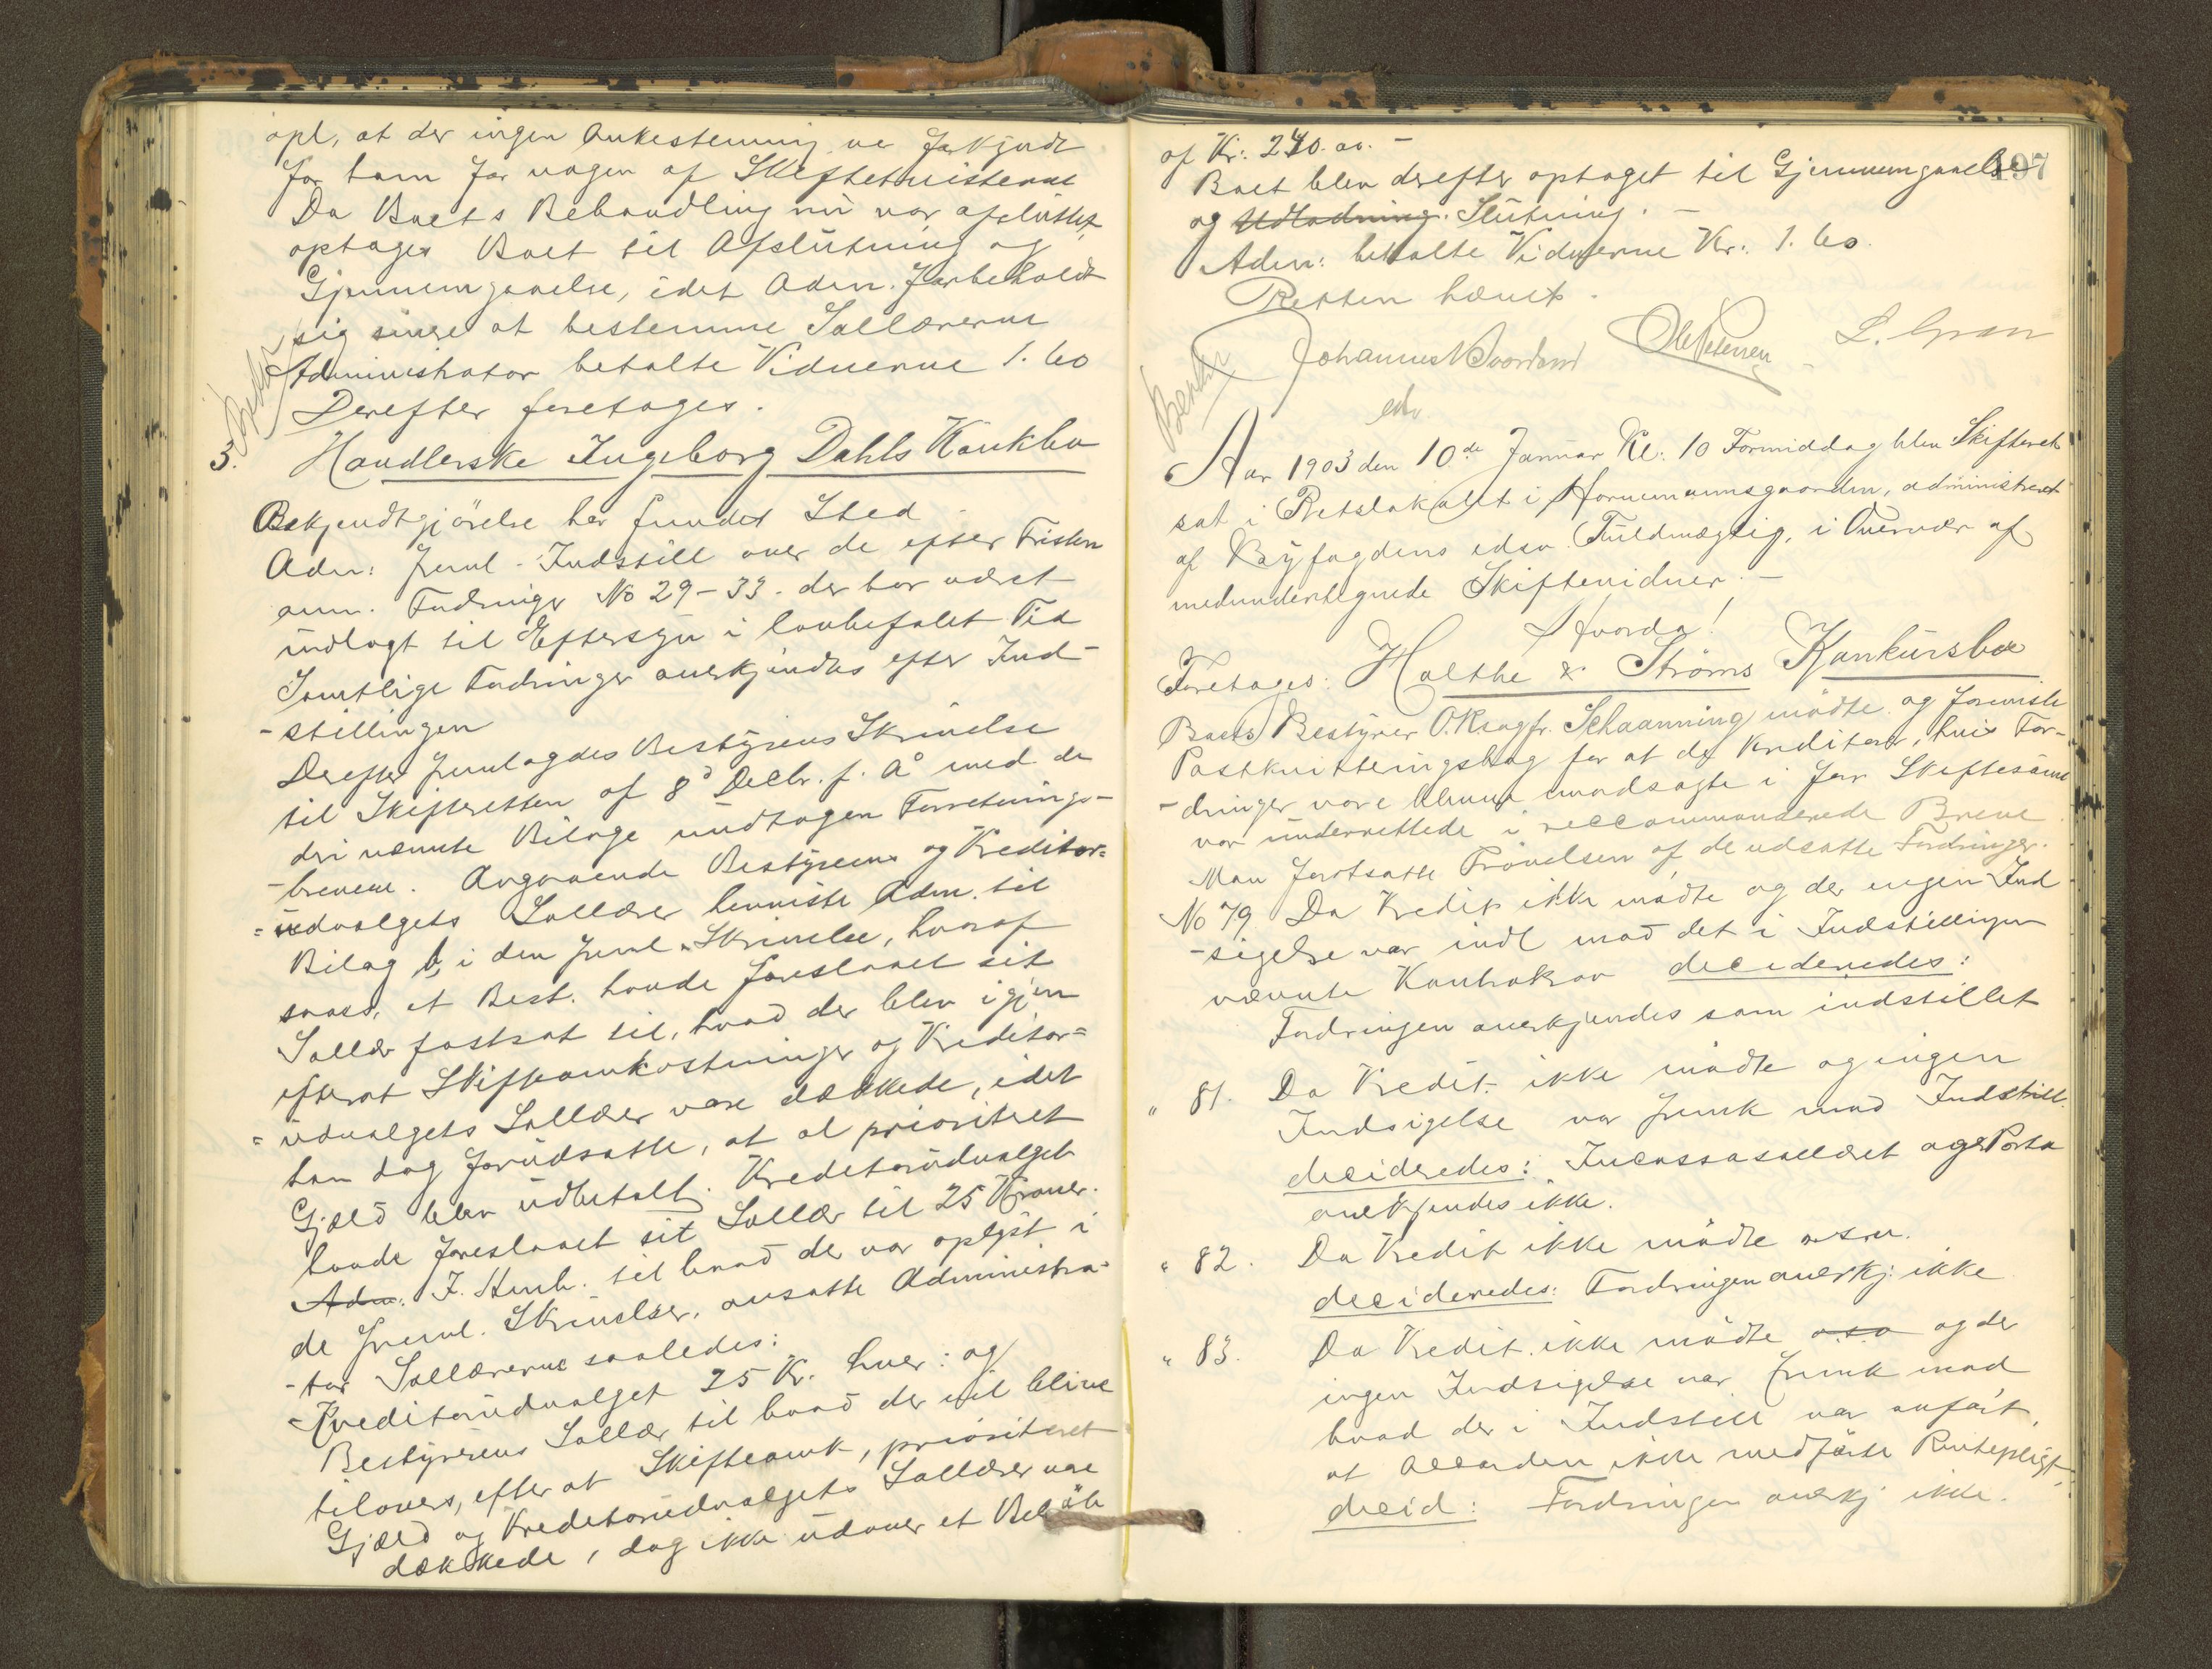 opl, at der ingen Ankestevning var forkyndt
for ham for nogen af Skiftetvisterne
Da Boets Behandling nu var afsluttet,
optoges Boet til Afslutning og
Gjennemgaaelse, idet Adm. forbeholdt
sig senere at bestemme Sallærerne
Administrator betalte Vidnerne 1.60
Derefter foretoges.
3. Handlerske Ingeborg Dahls Konkbo
Bekjendtgjörelse har fundet Sted
Adm: freml. Indstill over de efter Fristen
anm. Fordringer No 29-33. der har været
udlagt til Eftersyn i lovbefalet Tid
Samtlige Fordringer anerkjendes efter Ind-
-stillingen
Derefter fremlagdes Bestyrerens Skrivelse
til Skifteretten af 8d Decbr. f. A. med de
deri nævnte Bilage undtagen Forretnings-
-brevene. Angaaende Bestyrerens og Kreditor=
=udvalgets Sallærer henviste Adm. til
Bilag b, i den freml. Skrivelse, hvoraf
saaes, at Best. havde foreslaaet sit
Sallær fastsat til, hvad der blev igjen
efterat Skifteomkostninger og Kreditor=
=udvalgets Sallærer vare dækkede, idet
han dog forudsatte, at al prioriteret
Gjæld blev udbetalt. Kreditorudvalget
havde foreslaaet sit Sallær til 25 Kroner.
Adm. I. Henh. til hvad der var oplyst i
de freml. Skrivelser, ansatte Administra-
-tor Sallærerne saaledes:
-Kreditorudvalget 25 Kr. hver: og
Bestyrerens Sallær til hvad der vil blive
tilovers, efter at Skifteomk, prioriteret
Gjæld og Kreditorudvalgets Sallærer vare
dækkede, dog ikke udover et Belöb
197
af Kr: 240.00.-
Boet blev derefter optaget til Gjennemgaaelse
og Udlodning. Slutning.-
Adm: betalte Vidnerne Kr: 1.60.
Retten hævet.
Ole Petersen L. Gran
Aar 1903 den 10de Januar Kl: 10 Formiddag blev Skifteret
sat i Retslokalet i Hornemannsgaarden, administreret
af Byfogdens edsv. Fuldmægtig, i Overvær af
medundertegnede Skiftevidner.-
Hvorda!
Foretoges: Holthe & Ströms Konkursbo
Boets Bestyrer O.Rsagfr. Schaanning mödte og fremviste
Postkvitteringsbog for at de Kreditorer, hvis For-
-dringer vare blevne modsagte i forr Skiftesaml
var underrettede i reccommanderede Breve.
Man fortsatte Prövelsen af de udsatte Fordringer.
No 79 Da Kredit. ikke mödte og der ingen Ind
-sigelse var indl mod det i Indstillingen
nævnte decideredes:
Fordringen anerkjendes som indstillet
" 81. Da Kredit. ikke mödte og ingen
Indsigelse var fremk mod Indstill.
decideredes: Incassosallæret og Porto
anerkjendes ikke.
" 82. Da Kredit ikke mödte o.s.v.
decideredes: Fordringen anerkj: ikke
" 83. Da Kredit. ikke mödte o.s.v og der
ingen Indsigelse var fremk mod
hvad der i Indstill var anfört,
at Accorden ikke medförte Rentepligt,
decid: Fordringen anerkj ikke.